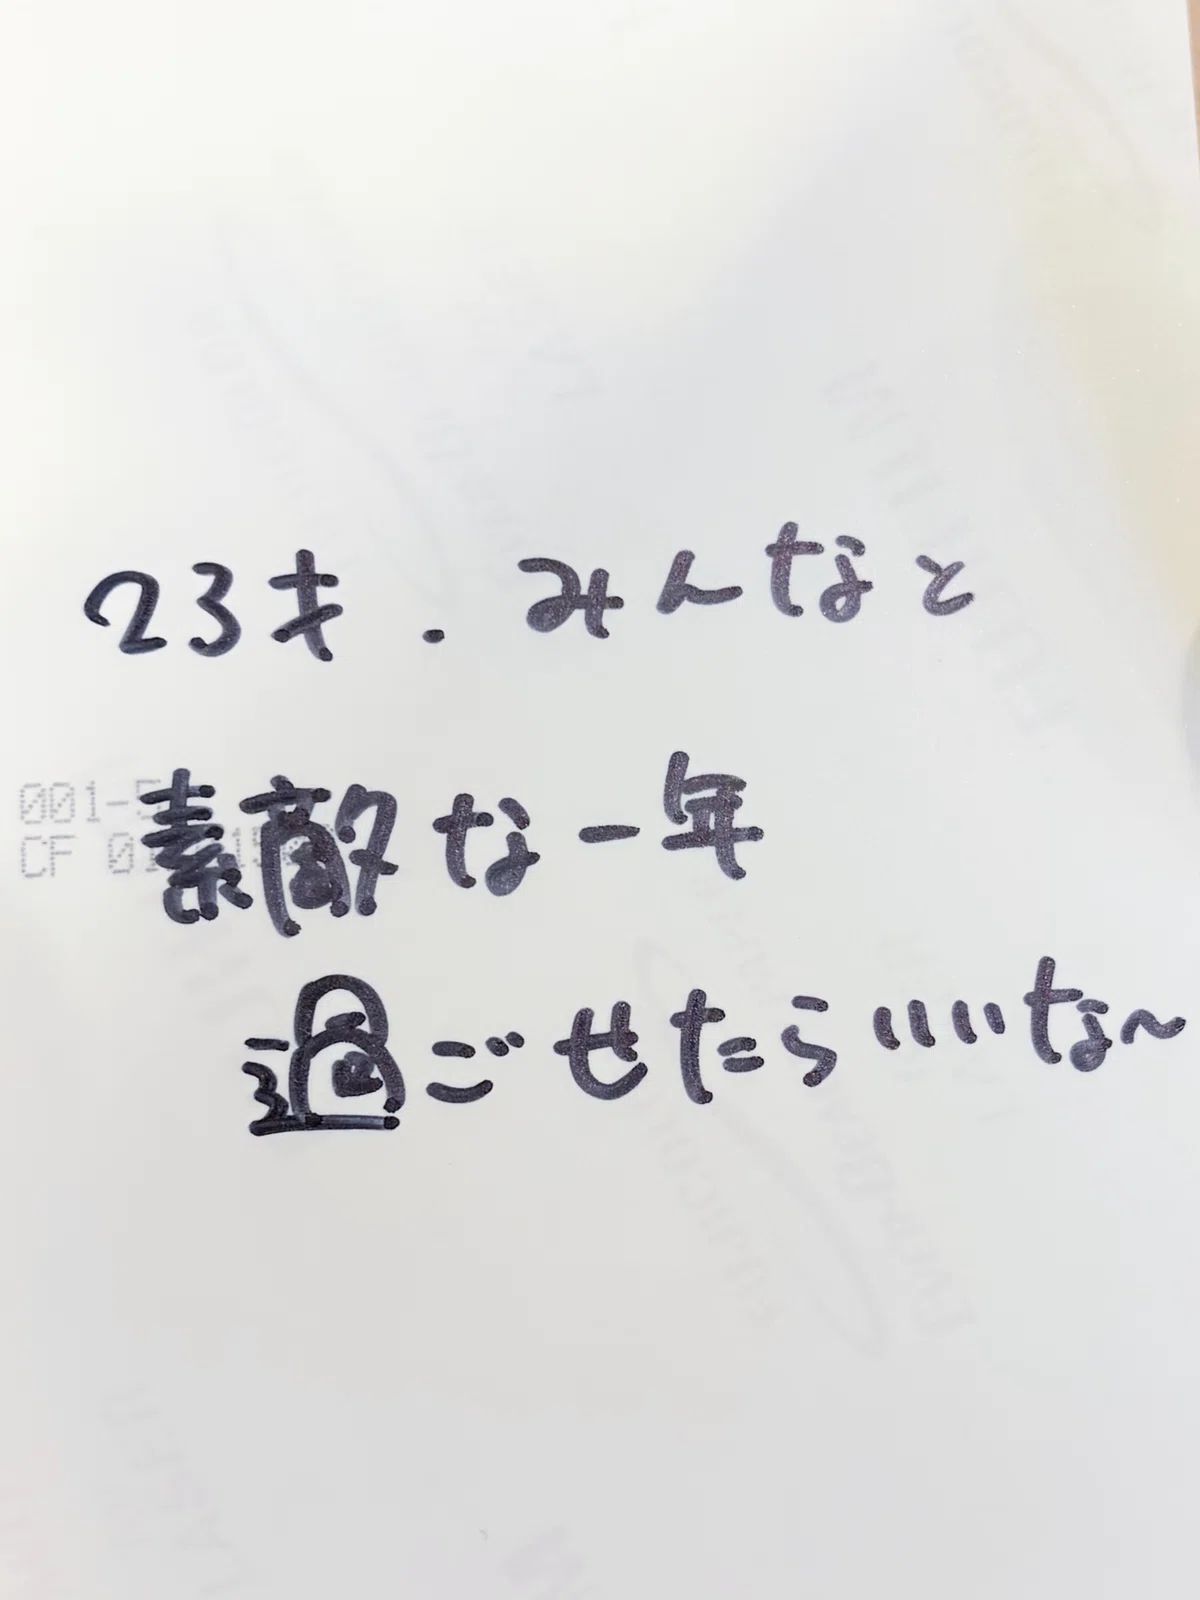 23才. みんなと
素敵な一年
過ごせたらいいな〜
001-5
CF 01